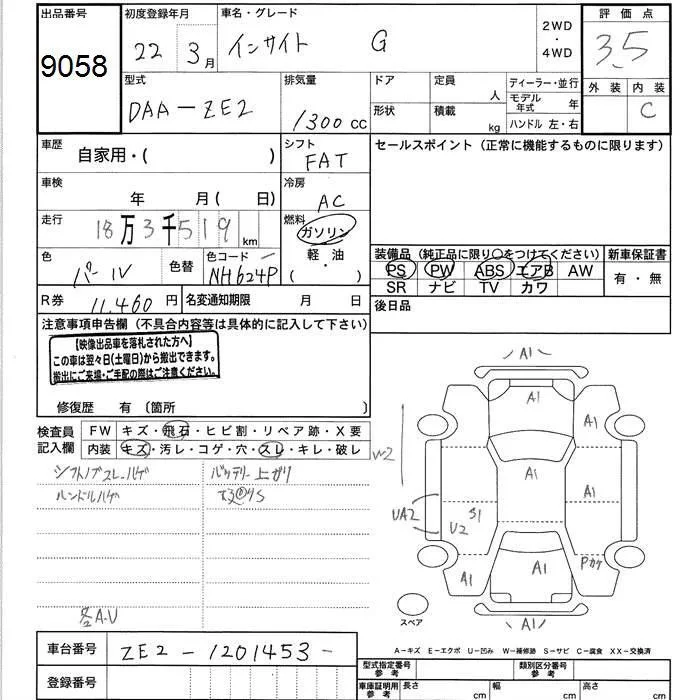 出品番号
9058
初度登録年月
22 3月
車名・グレード
インサイト G
2WD
・
4WD
評価点
3.5
型式
DAA-ZE2
排気量
1300cc
ドア
定員
人
ディーラー・並行
モデル年式 年
形状
積載
kg
ハンドル 左・右
外装
内装
C
車歴
自家用・( )
シフト
FAT
セールスポイント(正常に機能するものに限ります)
車検
年 月( 日)
冷房
AC
走行
18万3千519km
燃料
ガソリン
軽・油
( )
色
パール
色替
色コード
NH624P
装備品(純正品に限り○をつけてください)
新車保証書
PS PW ABS エアB AW
SR ナビ TV カワ
有・無
R券
11,460円
名変通知期限 月 日
後日品
注意事項申告欄(不具合内容等は具体的に記入して下さい)
【映像出品車を落札された方へ】
この車は翌々日(土曜日)から搬出できます。
搬出にご来場・ご手配の際はご注意ください。
修復歴 有〔箇所 〕
検査員
記入欄
FW キズ・飛石・ヒビ割・リペア跡・X要
内装 キズ・汚レ・コゲ・穴・スレ・キレ・破レ
シフトノブスレ・ハゲ
ハンドルハゲ
バッテリー上がり
各A.U
W2
A1
A1
A1
A1
UA2
S1
U2
A1
A1
A1
Pカケ
A1
スペア
A-キズ E-エクボ U-凹み W-補修跡 S-サビ C-腐食 XX-交換済
車台番号
ZE2-1201453-
登録番号
型式指定番号
参考
類別区分番号
参考
車庫証明用
参考
長さ cm
幅 cm
高さ cm